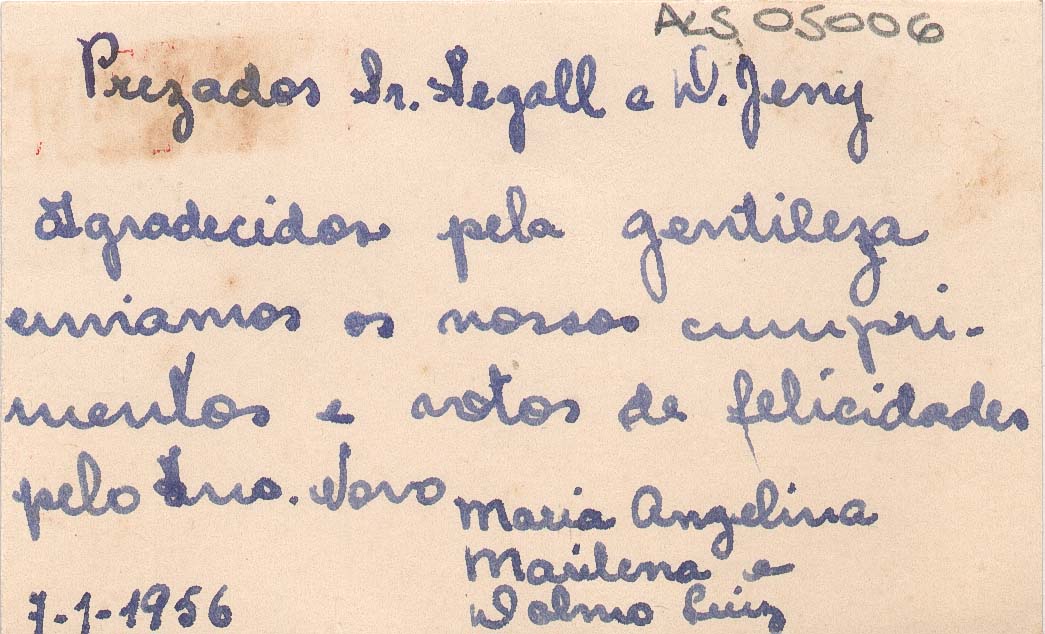 ALS 05006
Prezados Sr. Segall e D. Jeny
Agradecidos pela gentileza
enviamos os nossos cumpri-
mentos e votos de felicidades
pelo Ano. Novo
Maria Angelina
Marilena e
Dalmo Luiz
7-1-1956